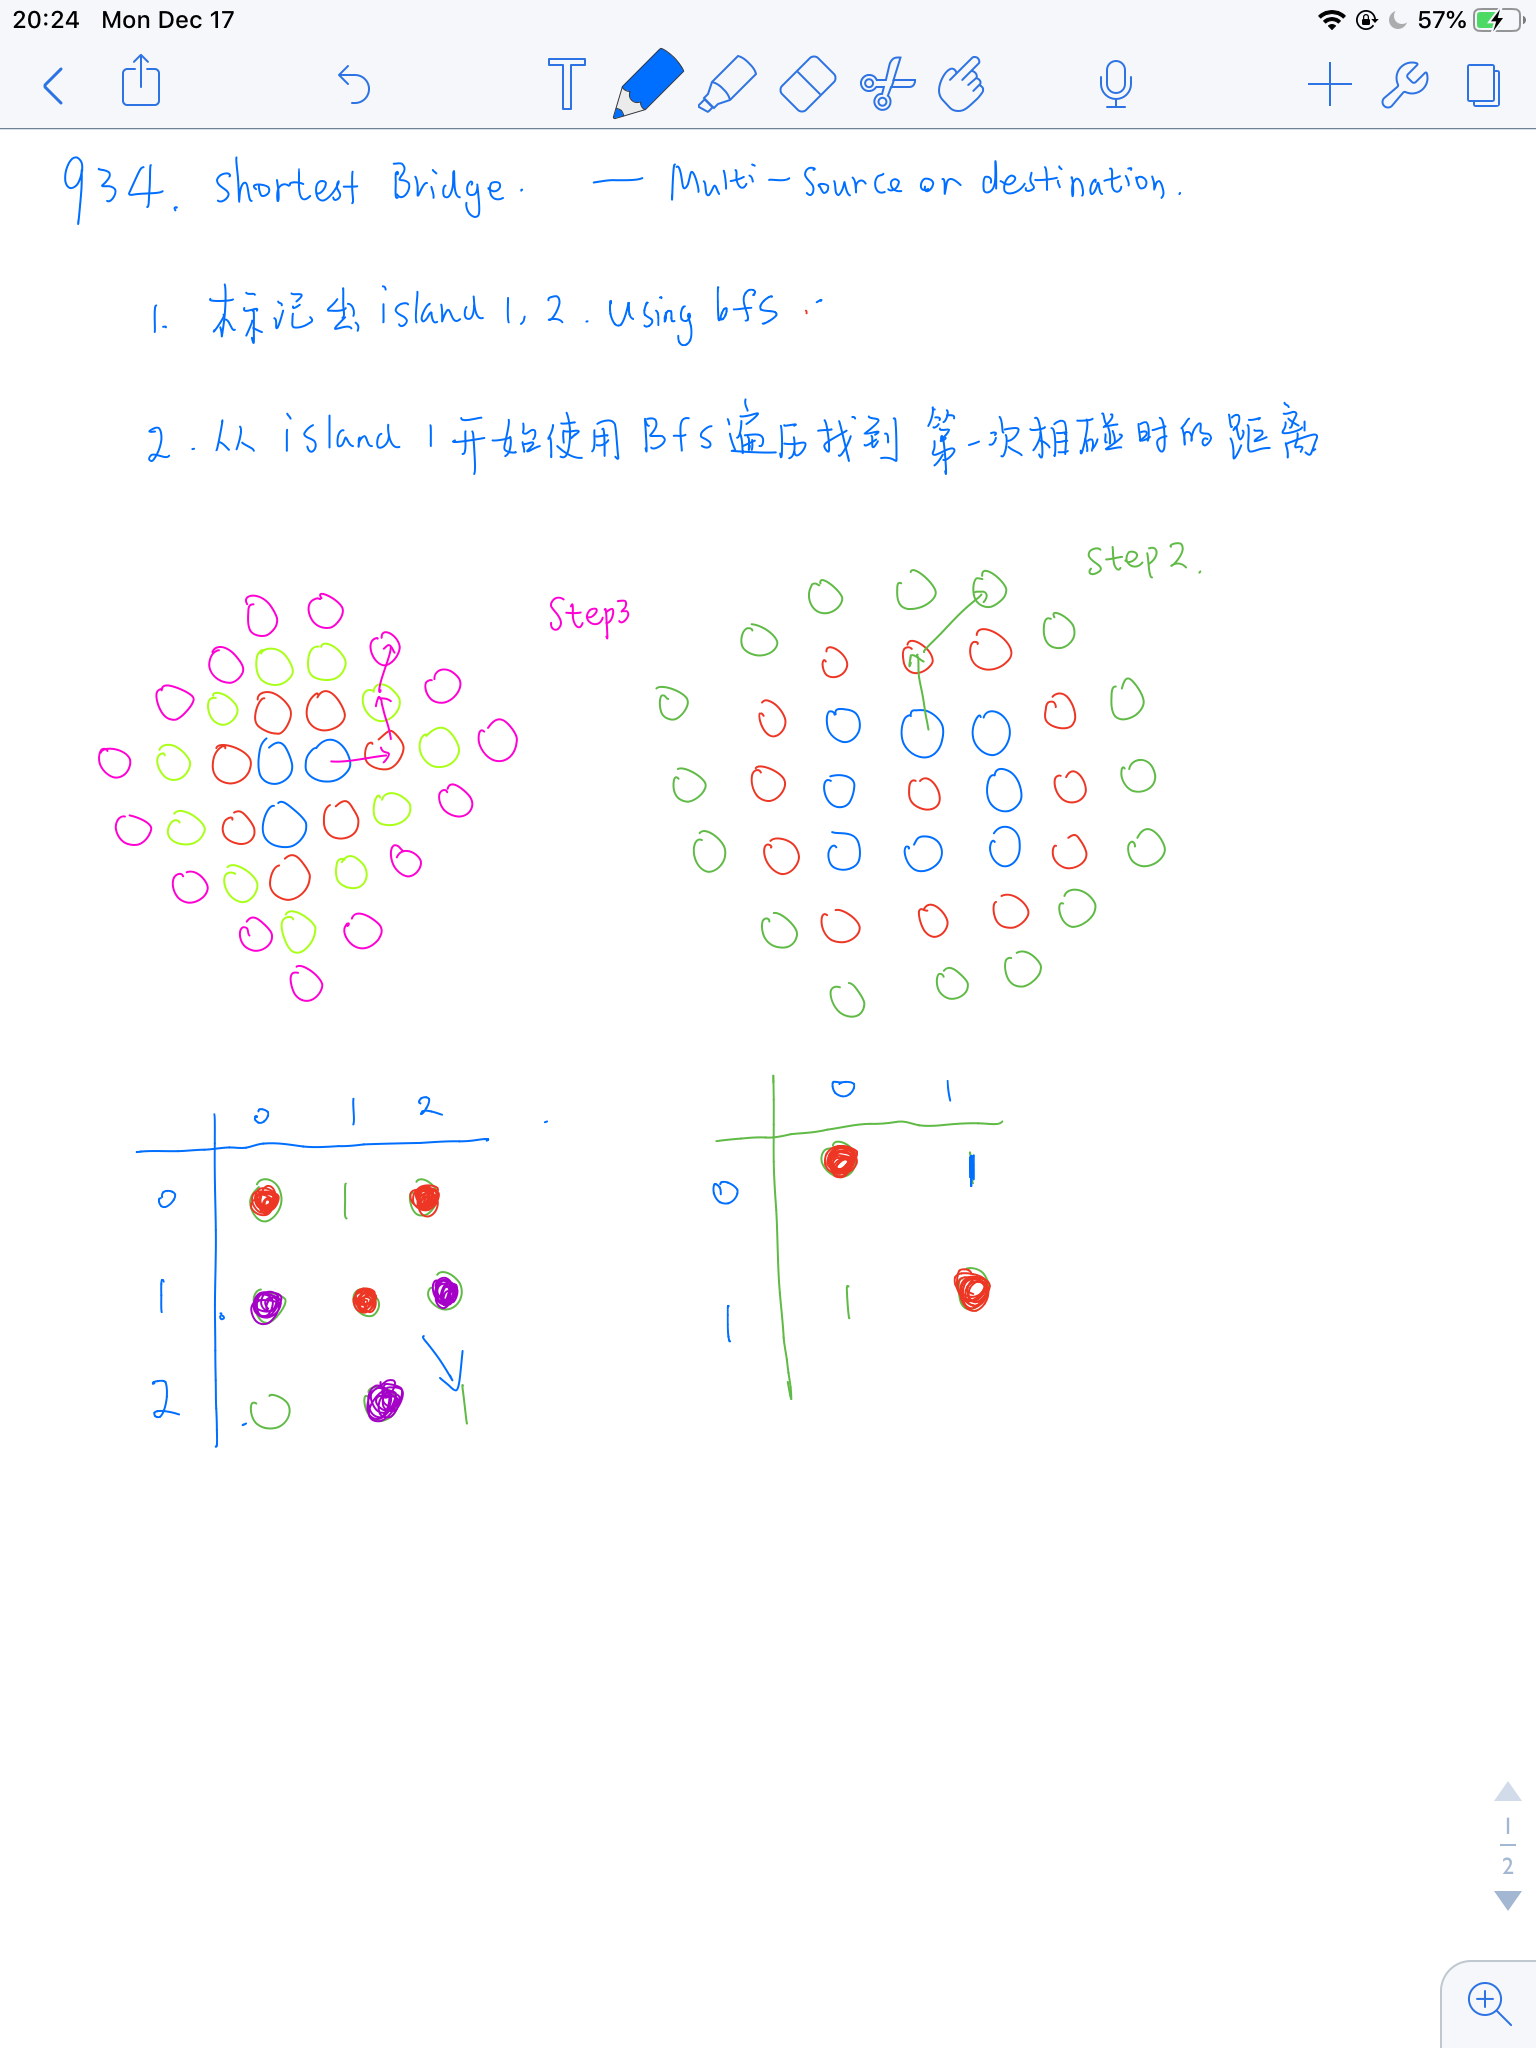 20:24 Mon Dec 17 57%
934. Shortest Bridge. — Multi-Source or destination.
1. 标记出 island 1, 2. using bfs.
2. 从 island 1 开始使用 Bfs 遍历找到 第一次相碰时的距离
Step 2.
Step3
0 1 2
0 1
1
2 1
0 1
0 1
1 1
1
2